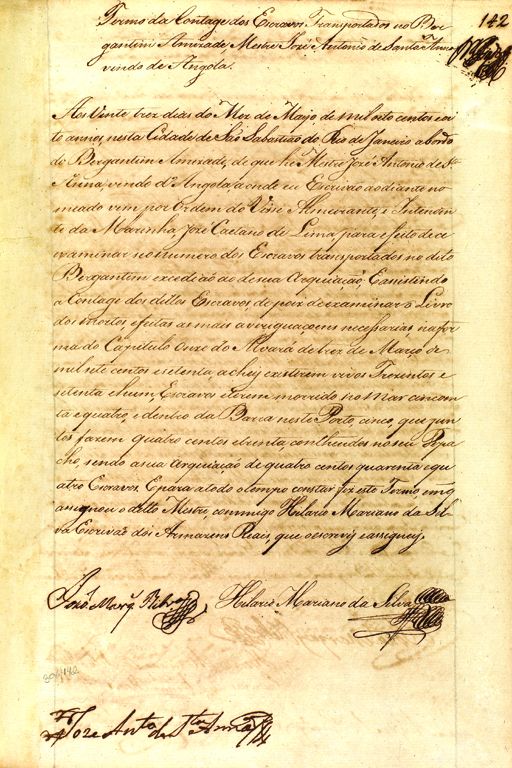 142
Termo da Contage dos Escravos Transportados no Ber-
gantim Amizade Mestre José Antonio de Santa Anna
vindo de Angola.
Aos Vinte trez dias do Mez de Majo de mil oito centos e oi-
to annos, nesta Cidade de São Sebastião do Rio de Janeiro a bordo
do Bergantim Amizade, de que he Mestre José Antonio de Sta
Anna, vindo d'Angola aonde eu Escrivão ao diante no-
meado vim por Ordem do Vice Almeirante, e Intenden-
te da Marinha José Caetano de Lima para efeito de se
examinar se o numero dos Escravos transportados no dito
Bergantim excedia ao de sua Arquiação, E assistindo
a Contage dos dittos Escravos, depoix de examinar o Livro
dos mortos, e feitas as mais averiguaçoens necessarias na for-
ma do Capitulo Onze do Alvará de trez de Março de
mil sete centos e setenta, achey existirem vivos Trezentos e
setenta e hum, Escravos e terem morrido no Mar cincoen-
ta e quatro, e dentro da Barra neste Porto cinco, que jun-
tos fazem quatro centos e trinta, contheudos no seu
sendo a sua Arquiação de quatro centos quarenta e qu-
atro Escravos. E para a todo o tempo constar fiz este Termo, em q
assignou o ditto Mestre, commigo Hilario Mariano da Sil-
va Escrivão dos Armazens Reais, que o escrevy e assigney.
Hilario Mariano da Silva
Joze Anto de Sta Anna